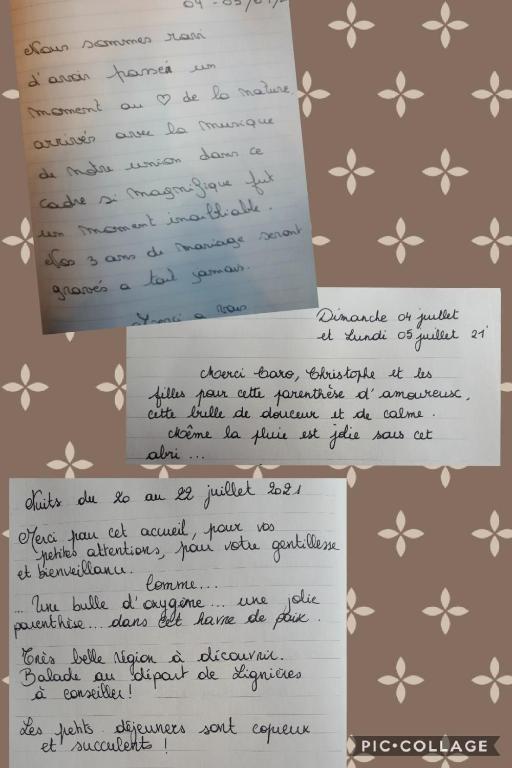 04 - 05/07/2
Nous sommes ravi
d'avoir passer un
moment au ♡ de la nature,
arrivés avec la musique
de notre union dans ce
cadre si magnifique fut
un moment inoubliable.
Nos 3 ans de mariage seront
gravés a tout jamais.
Merci a vous
Dimanche 04 juillet
et Lundi 05 juillet 21
Merci Caro, Christophe et les
filles pour cette parenthèse d'amoureux,
cette bulle de douceur et de calme.
Même la pluie est jolie sous cet
abri ...
Nuits du 20 au 22 juillet 2021
Merci pour cet accueil, pour vos
petites attentions, pour votre gentillesse
et bienveillance.
Comme...
... Une bulle d'oxygène ... une jolie
parenthèse ... dans cet havre de paix.
Très belle région à découvrir.
Balade au départ de Lignières
à conseiller !
Les petits déjeuners sont copieux
et succulents !
PIC•COLLAGE